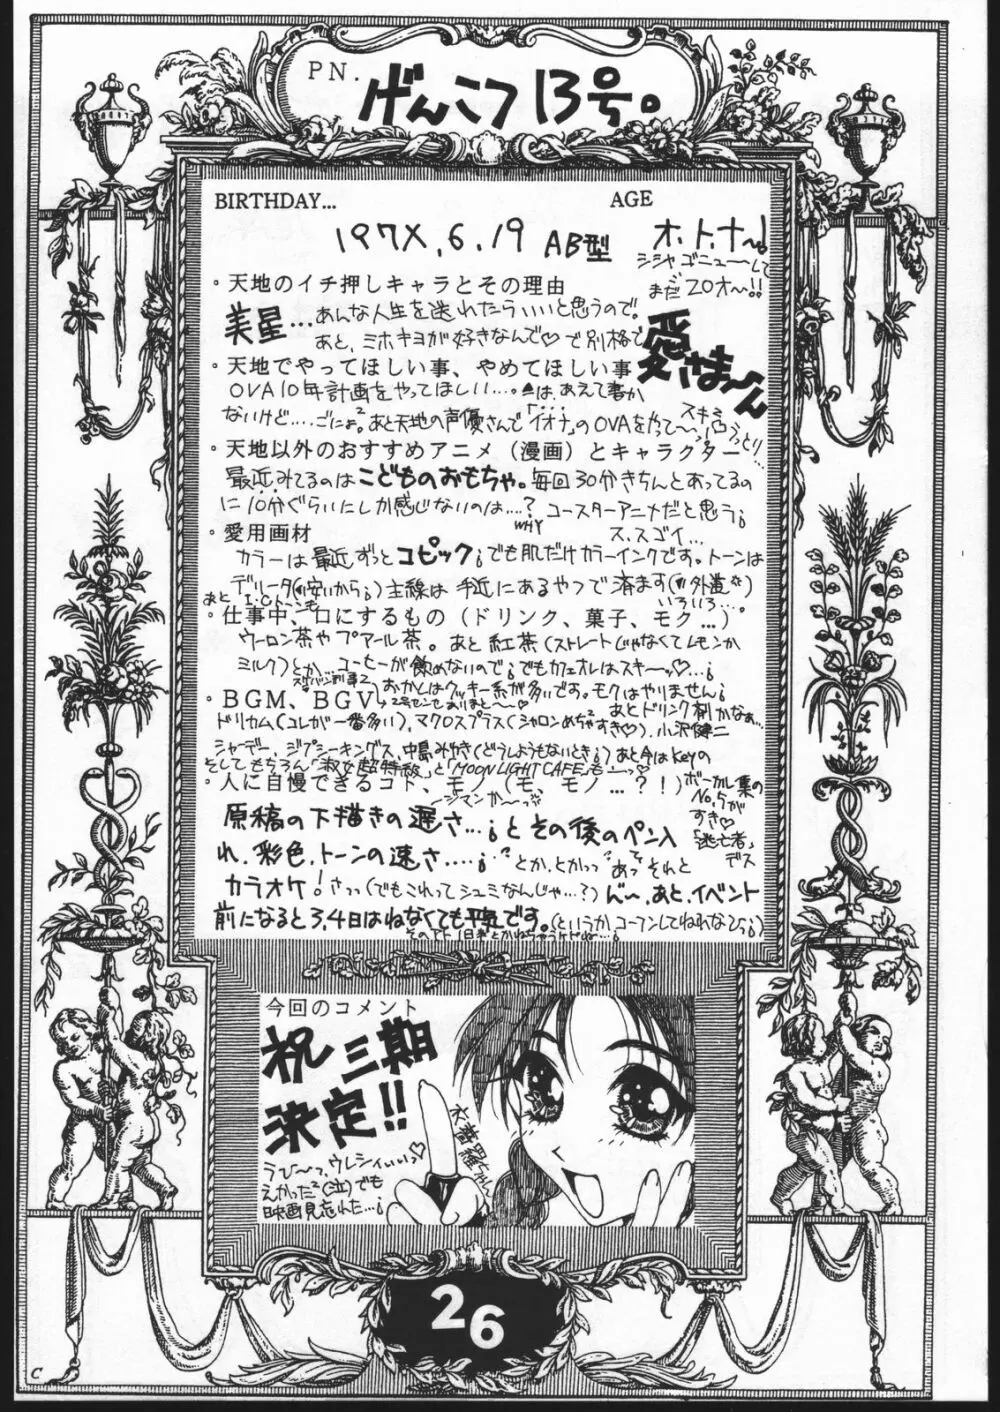 PN.
げんこつ13号。
BIRTHDAY...
AGE
197X.6.19 AB型
オ.ト.ナ〜!
シシャゴニューして
まだ20才〜!!
・天地のイチ押しキャラとその理由
美星…
あんな人生を送れたらいいと思うので。
あと、ミホキヨが好きなんで♡で別格で
愛さま〜ん
・天地でやってほしい事、やめてほしい事
OVA10年計画をやってほしい…。▲は、あえて書か
ないけど…ごにょ²あと天地の声優さんで「イオナ」のOVAをやって〜
・天地以外のおすすめアニメ（漫画）とキャラクター
最近みてるのはこどものおもちゃ。毎回30分きちんとあってるの
に10分ぐらいにしか感じないのは…?コースターアニメだと思う¡
WHY
ス、スゴイ…
・愛用画材
カラーは最近ずっとコピック¡でも肌だけカラーインクです。トーンは
デリータ(安いから¡)主線は手近にあるやつで済ます(外道)
あとI.Cトーンも
いろいろ…。
・仕事中、口にするもの（ドリンク、菓子、モク…）
ウーロン茶やプアール茶。あと紅茶(ストレートじゃなくてレモンか
ミルク)とか…コーヒーが飲めないので¡でもカフェオレはスキーッ♡…¡
おかしはクッキー系が多いです。モクはやりません¡
・BGM、BGV
あとドリンク剤かなぁ…
ドリカム(コレが一番多い)、マクロスプラス(シャロンめちゃ²すき♡)、小沢健二
シャーデー、ジプシーキングス、中島みゆき(どうしようもないとき¡)あと今はkeyの
そしてもちろん「淑女超特急」と「MOON LIGHT CAFE」も─っ♡
ボーカル集の
No.5が
すき♡
「逃亡者」
デス
・人に自慢できるコト、モノ（モ、モノ…?!）
ジマンか〜っ
原稿の下描きの遅さ…¡とその後のペン入
れ、彩色、トーンの速さ…¡とか、とかっっ あっそれと
カラオケ!さっっ(でもこれってシュミなんじゃ…?)ん〜、あと、イベント
前になると3,4日はねなくても平気です。(というかコーフンしてねれない¡)
今回のコメント
祝三期
決定!!
うひ〜っ、ウレシィぃぃっ♡
えかった²(泣)でも
映画見忘れた…¡
26
C